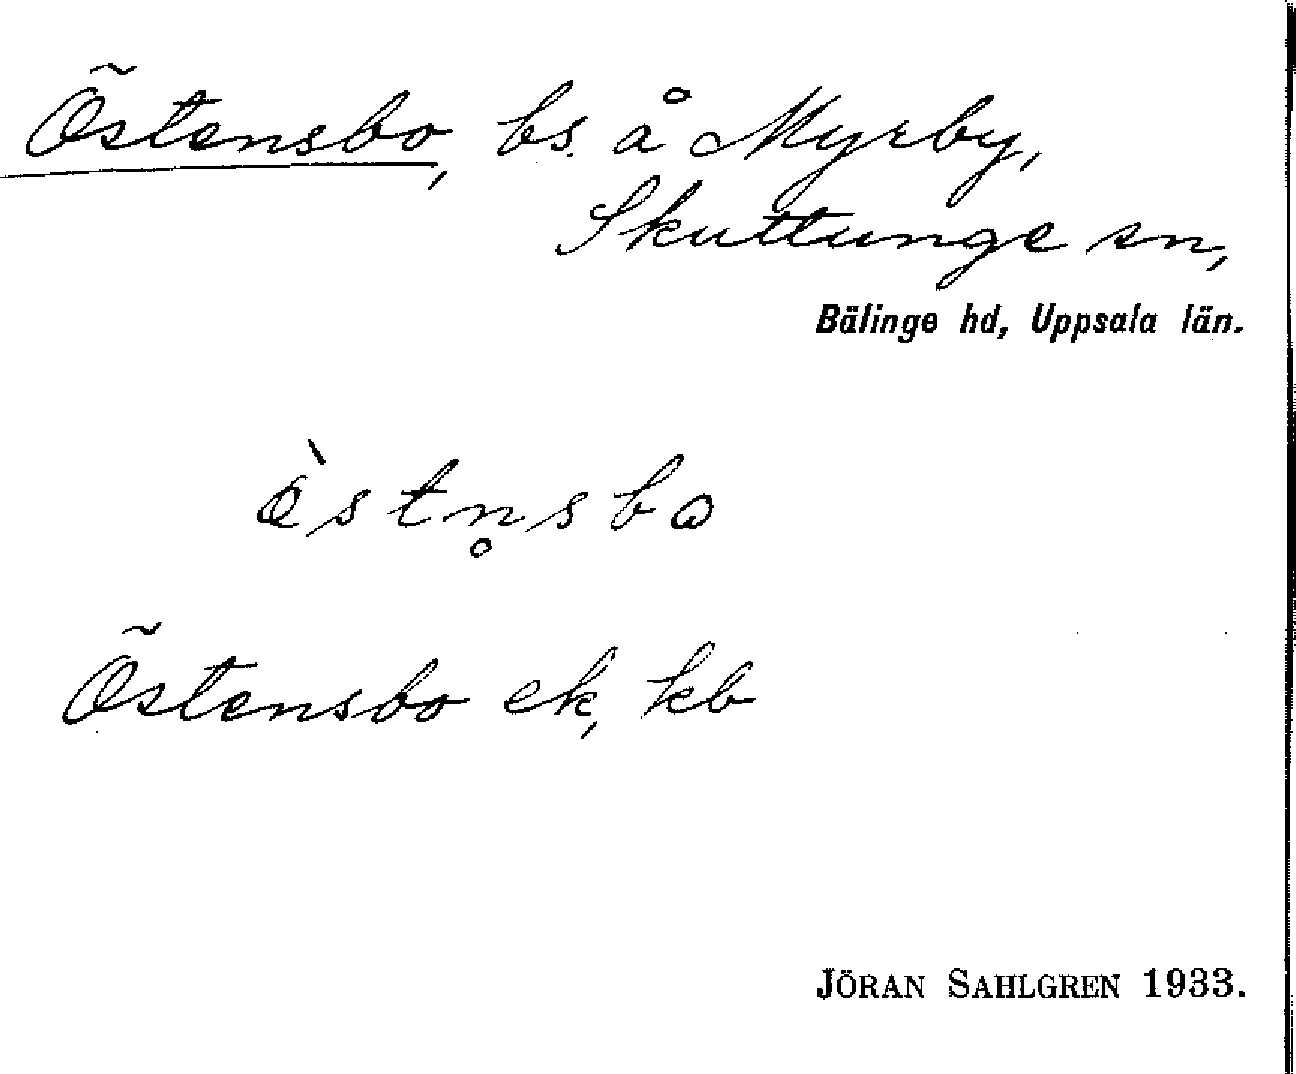 Östensbo, bs. å Myrby,
Skuttunge sn,
Bälinge hd, Uppsala län.
Östensbo ek, kb
JÖRAN SAHLGREN 1933.